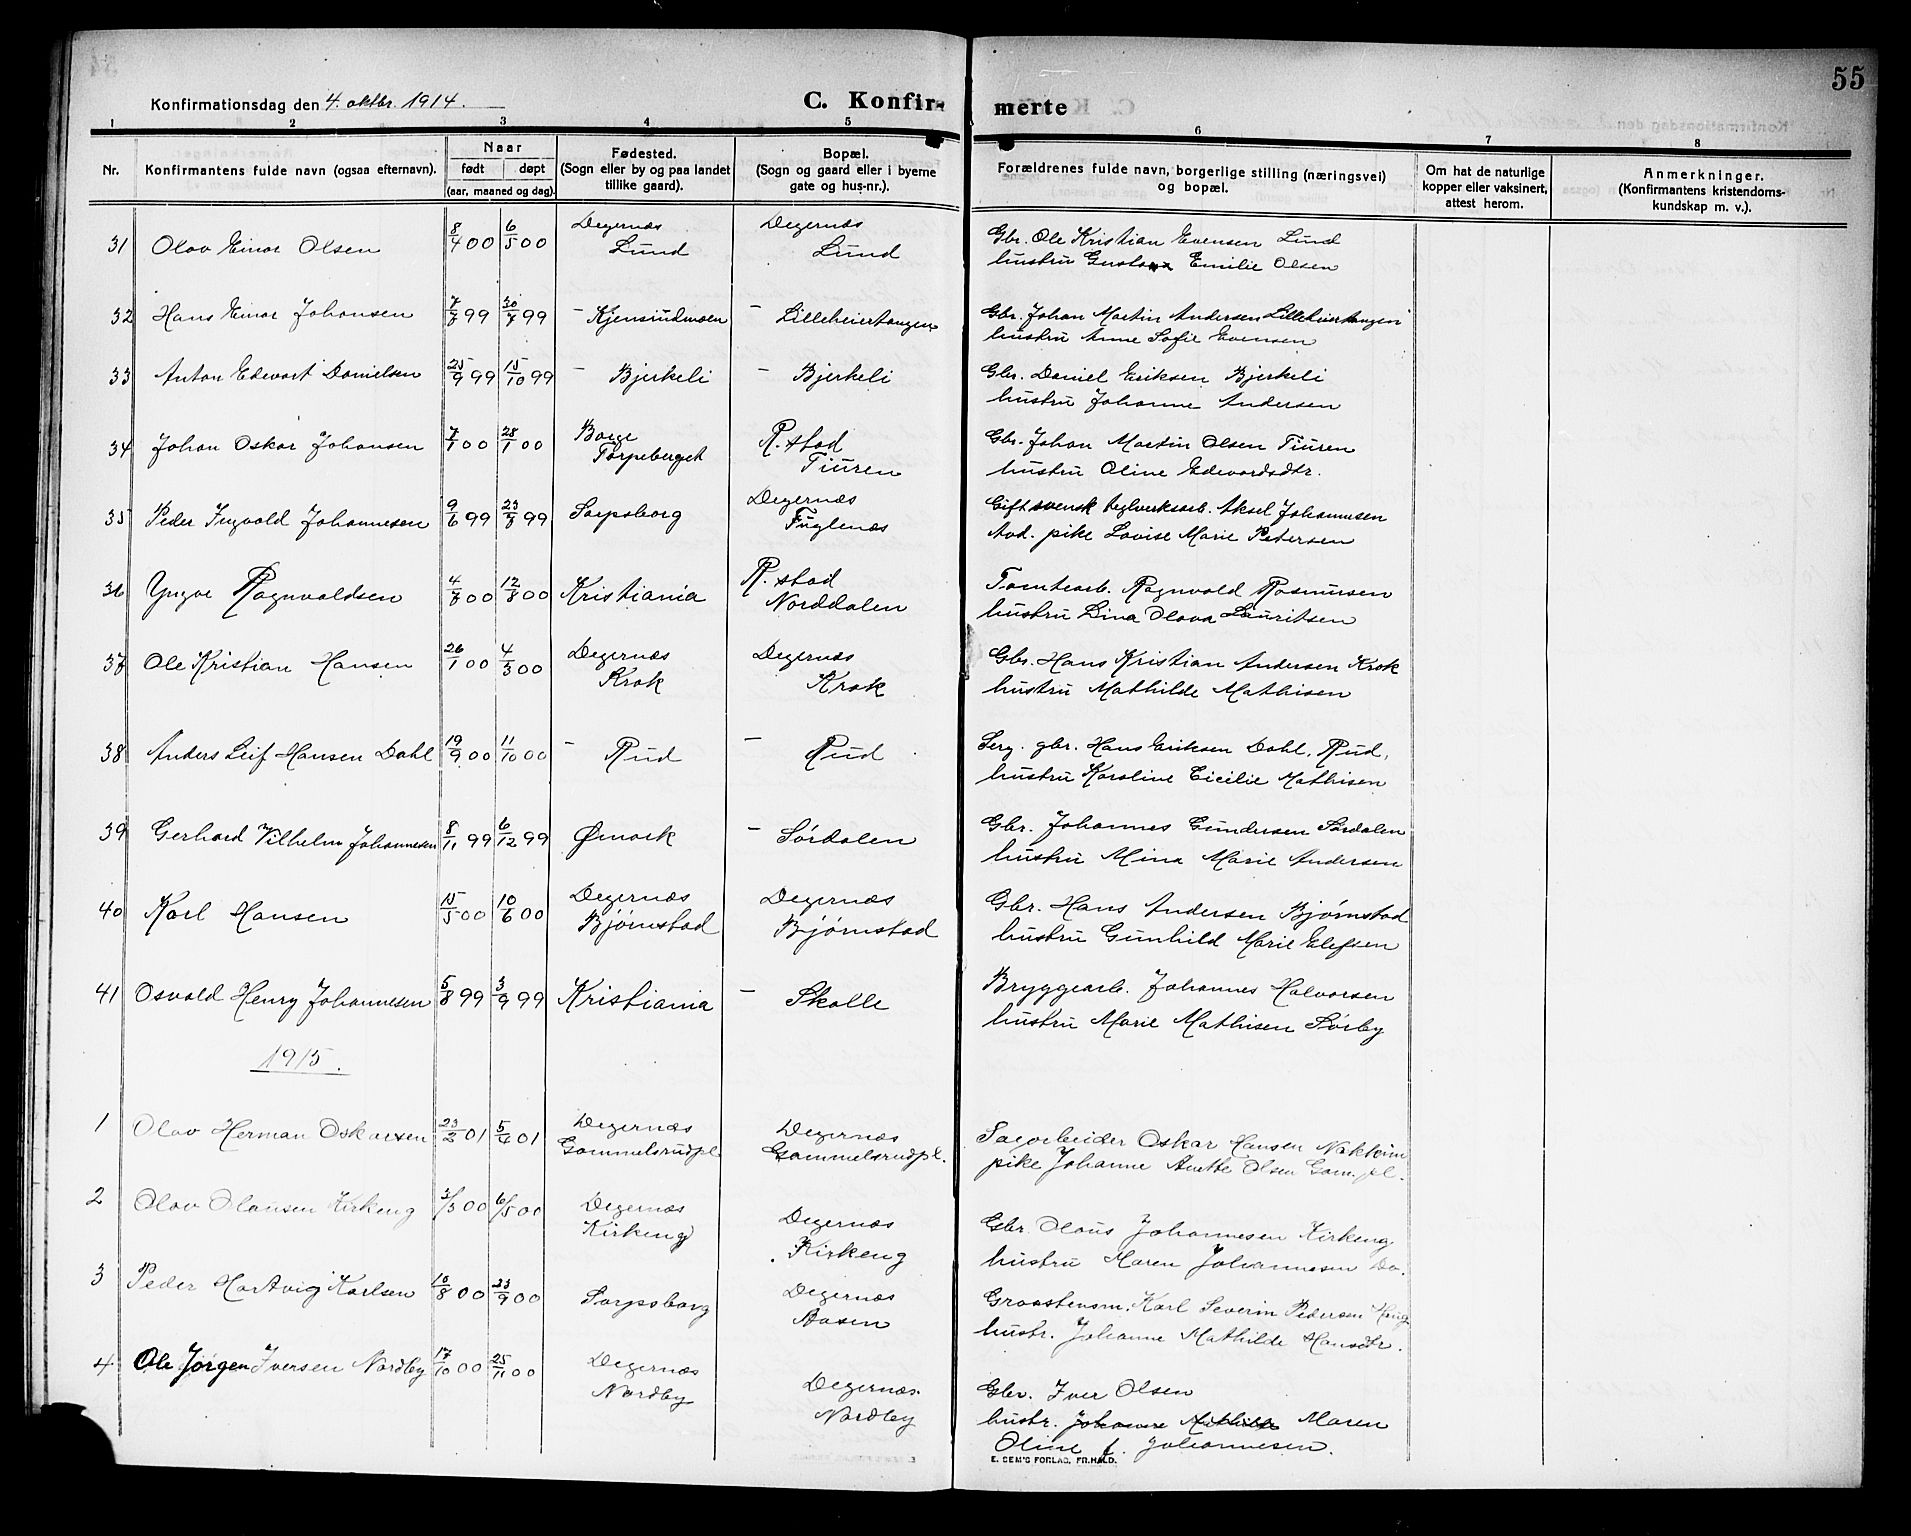 55
Konfirmationsdag den 4. oktbr. 1914.
C. Konfirmerte
1 2 3 4 5 6 7 8
Nr.
Konfirmantens fulde navn (ogsaa efternavn).
Naar
født døpt
(aar, maaned og dag).
Fødested.
(Sogn eller by og paa landet
tillike gaard).
Bopæl.
(Sogn og gaard eller i byerne
gate og hus-nr.).
Forældrenes fulde navn, borgerlige stilling (næringsvei)
og bopæl.
Om hat de naturlige
kopper eller vaksinert,
attest herom.
Anmerkninger.
(Konfirmantens kristendoms-
kundskap m. v.).
31 Olav Einar Olsen 8/4 00 6/5 00 Degernæs Lund Degernæs Lund Gbr. Ole Kristian Evensen Lund
hustru Emilie Olsen
32 Hans Einar Johansen 99 99 - Kjensrudmoen - Lilleheiertangen Gbr. Johan Martin Andersen Lilleheiertangen
hustru Anne Sofie Evensen
33 Anton Edevart Danielsen 25/9 99 15/10 99 - Bjerkeli - Bjerkeli Gbr. Daniel Eriksen Bjerkeli
hustru Johanne Andersen
34 Johan Oskar Johansen 7/1 00 28/1 00 Borge Torpeberget R.stad Tiuren Gbr. Johan Martin Olsen Tiuren
hustru Oline Edevardsdtr.
35 Peder Ingvald Johannesen 9/6 99 23/8 99 Sarpsborg Degernæs Fuglenæs Gift svensk teglverksarb. Aksel Johannesen
pike Lovise Marie Petersen
36 Yngve Ragnvaldsen 4/8 00 12/8 00 Kristiania R.stad Norddalen Tomtearb. Ragnvald Rasmusen
hustru Lina Olava Lauritsen
37 Ole Kristian Hansen 26/1 00 4/3 00 Degernæs Krok Degernæs Krok Gbr. Hans Kristian Andersen Krok
hustru Mathilde Mathisen
38 Anders Leif Hansen Dahl 19/9 00 11/10 00 - Rud - Rud Serg. gbr. Hans Eriksen Dahl, Rud,
hustru Karoline Cicilie Mathisen
39 Gerhard Vilhelm Johannesen 8/11 99 6/12 99 Ømark - Sørdalen Gbr. Johannes Gundersen Sørdalen
hustru Mina Marie Andersen
40 Karl Hansen 15/5 00 10/6 00 Degernæs Bjørnstad Degernæs Bjørnstad Gbr. Hans Andersen Bjørnstad
hustru Gunhild Marie Elefsen
41 Osvald Henry Johannesen 5/8 99 3/9 99 Kristiania - Skolle Bryggearb. Johannes Halvorsen
hustru Marie Mathisen Sørby
1915.
1 Olav Herman Oskarsen 01 5/4 01 Degernæs Gammelsrudpl. Degernæs Gammelsrudpl. Sagarbeider Oskar Hansen
pike Johanne Anette Olsen Gam. pl.
2 Olav Olausen Kirkeng 3/3 00 6/5 00 Degernæs Kirkeng Degernæs Kirkeng Gbr. Olaus Johannesen Kirkeng
hustru Maren Johannesen Do.
3 Peder Hartvig Karlsen 10/8 00 23/9 00 Sarpsborg Degernæs Aasen Graastensm. Karl Severin Pedersen
hustr. Johanne Mathilde Hansdtr.
4 Ole Jørgen Iversen Nordby 17/10 00 25/11 00 Degernæs Nordby Degernæs Nordby Gbr. Iver Olsen
hustr. Johanne Mathilde Maren
Oline f. Johannesen.
E. SEM'S FORLAG, FR.HALD.